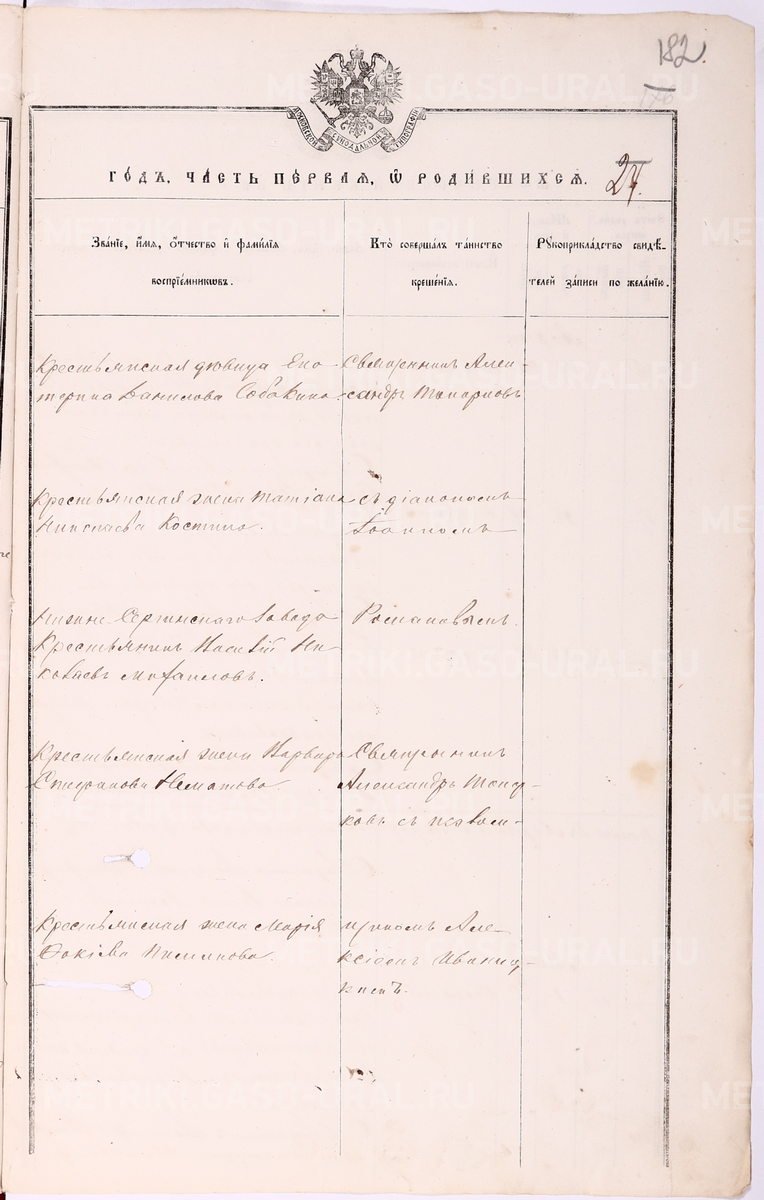 182.
МОСКОВСКОЙ СѴНОДАЛЬНОЙ ТИПОГРАФІИ
ГО́ДЪ, ЧА́СТЬ ПЕ́РВАЯ, Ѡ҆ РОДИ́ВШИХСЯ.
27.
Зва́нїе, и҆́мя, ѻ҆́тчество и҆ фами́лїя
воспрїе́мникѡвъ.
Кто̀ соверша́лъ та́инство
креще́нїя.
Рꙋкоприкла́дство свидѣ́-
телей за́писи по жела́нїю.
Крестьянская дѣвица Ека-
терина Данилова Собакина.
Священникъ Алек-
сандръ Топорковъ
Крестьянская жена Татіана
Николаева Костина.
съ діакономъ
Іоанномъ
Нижне-Сергинскаго завода
Крестьянинъ Василій Ни-
колаевъ Михаиловъ.
Романовымъ.
Крестьянская жена Варвара
Стефанова
Священникъ
Александръ Топор-
ковъ съ псалом-
Крестьянская жена Марія
Фокіева
щикомъ Але-
ксіемъ
METRIKI.GASO-URAL.RU